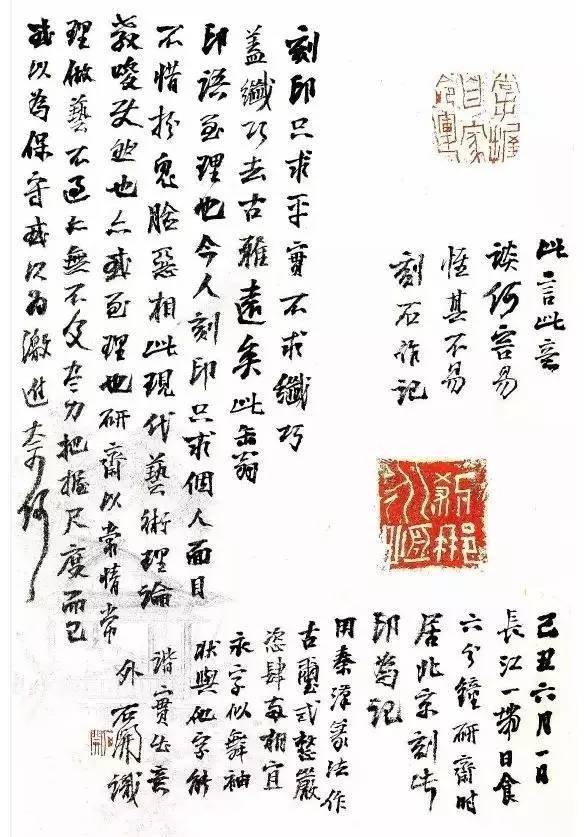 掌握自家命運
此言此意
談何容易
惟其不易
刻石作記
刻印只求平實不求纖巧
蓋纖巧去古雅遠矣此缶翁
印語至理也今人刻印只求個人面目
不惜扮鬼臉惡相此現代藝術理論
教唆使然也亦或至理也研齋以常情常
理做藝不過亦無不及尽力把握尺度而已
或以為保守或以為激進奈何
永恒
己丑六月一日
長江一帶日食
六分鐘研齋時
居北京刻此
印為記
用秦漢篆法作
古璽式整嚴
恣肆両相宜
永字似舞袖
狀與他字能
諧實出意
外石開識